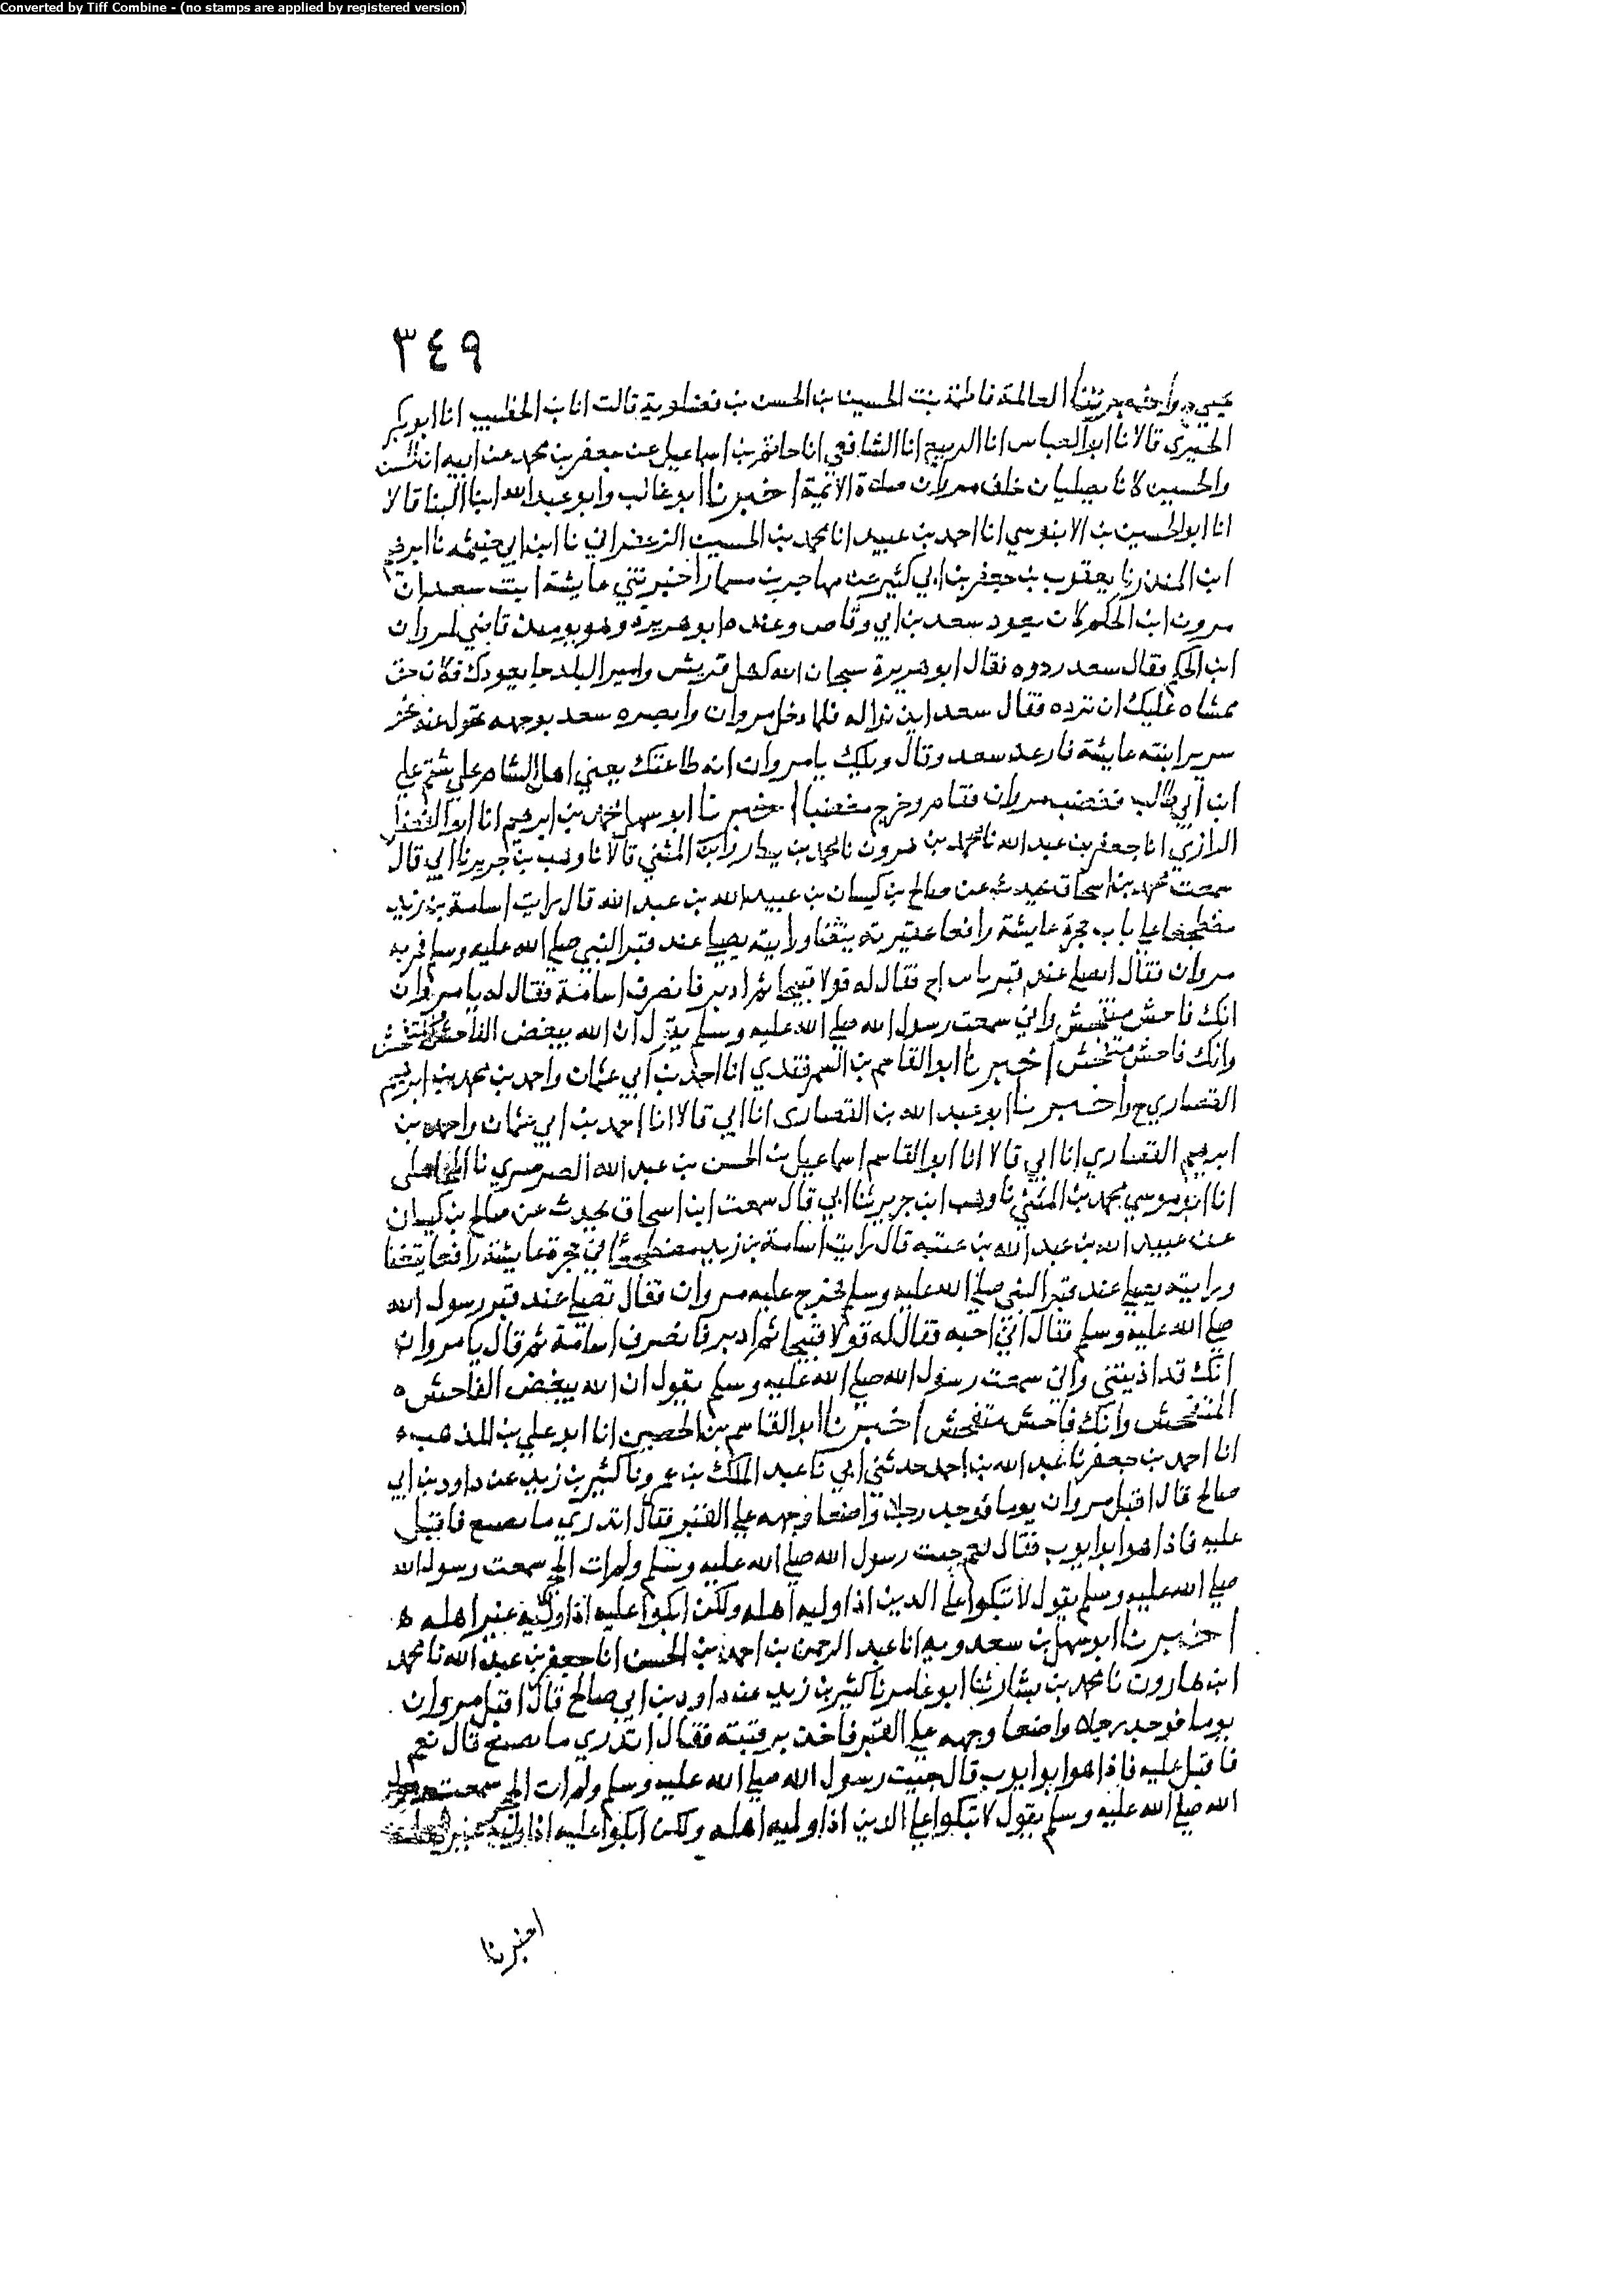 Converted by Tiff Combine - (no stamps are applied by registered version)
٣٤٩
العالمة فاطمة بنت الحسين بن الحسن بن فضلوية قالت انا بن الخطيب انا ابو بكر
الحيري قالا نا ابو العباس انا الربيع انا الشافعي انا حاتم بن اسماعيل عن جعفر بن محمد عن ابيه ان الحسن
والحسين كانا يصليان خلف مروان صلاة الائمة اخبرنا ابو غالب وابو عبد الله ابنا البنا قالا
انا ابو الحسين بن الابنوسي انا احمد بن عبيد انا محمد بن الحسين الزعفراني نا ابن ابي خيثمه نا ابرهيم
ابن المنذر نا يعقوب بن جعفر بن ابي كثير عن مهاجر بن مسمار اخبرتني عايشة ابنت سعد ان
مرون ابن الحكم كان يعود سعد بن ابي وقاص وعنده ابو هريرة وهو يوميذ قاضي لمروان
ابن الحكم فقال سعد ردوه فقال ابو هريرة سبحان الله كهل قريش وامير البلد جا يعودك فكان حق
ممشاه عليك ان ترده فقال سعد ايذنوا له فلما دخل مروان وابصره سعد بوجهه تحول عنه نحو
سرير ابنته عايشة فارعد سعد وقال ويلك يا مروان انه طاعتك يعني اهل الشام على شتم علي
ابن ابي طالب فغضب مروان فقام وخرج مغضبا اخبرنا ابو سهل محمد بن ابرهيم انا ابو الفضل
الرازي انا جعفر بن عبد الله نا محمد بن هرون نا محمد بن بشار وابن المثني قالا نا وهب بن جرير نا ابي قال
سمعت محمد بن اسحاق يحدث عن صالح بن كيسان بن عبيد الله بن عبد الله قال رايت اسامة بن زيد
مضطجعا علي باب حجرة عايشة رافعا عقيرته يتغنا ورايته يصلي عند قبر النبي صلي الله عليه وسلم فمر به
مروان فقال اتصلي عند قبر فقال له قولا قبيحا ثم ادبر فانصرف اسامة فقال له يا مروان
انك فاحش متفحش واني سمعت رسول الله صلي الله عليه وسلم يقول ان الله يبغض الفاحش المتفحش
وانك فاحش متفحش اخبرنا ابو القاسم بن السمرقندي انا احمد بن ابي عثمان واحمد بن محمد بن ابرهيم
القصاري ح واخبرنا ابو عبد الله بن القصاري انا ابي قالا انا احمد بن ابي عثمان واحمد بن
ابرهيم القصاري انا ابي قالا انا ابو القاسم اسماعيل بن الحسن بن عبد الله الصرصري نا المحاملي
انا ابو موسي محمد بن المثني نا وهب ابن جرير ثنا ابي قال سمعت ابن اسحاق يحدث عن صالح بن كيسان
عن عبيد الله بن عبد الله بن عتبه قال رايت اسامة بن زيد مضطجعا في حجرة عايشة رافعا يتغنا
ورايته يصلي عند قبر النبي صلي الله عليه وسلم فخرج عليه مروان فقال تصلي عند قبر رسول الله
صلي الله عليه وسلم فقال اني احبه فقال له قولا قبيحا ثم ادبر فانصرف اسامة ثم قال يا مروان
انك قد اذيتني واني سمعت رسول الله صلي الله عليه وسلم يقول ان الله يبغض الفاحش
المتفحش وانك فاحش متفحش اخبرنا ابو القاسم بن الحصين انا ابو علي بن المذهب
انا احمد بن جعفر نا عبد الله بن احمد حدثني ابي نا عبد الملك بن عمرو نا كثير بن زيد عن داود بن ابي
صالح قال اقبل مروان يوما فوجد رجلا واضعا وجهه علي القبر فقال اتدري ما تصنع فاقبل
عليه فاذا هو ابو ايوب فقال نعم جيت رسول الله صلي الله عليه وسلم ولم ات الحجر سمعت رسول الله
صلي الله عليه وسلم يقول لا تبكوا علي الدين اذا وليه اهله ولكن ابكوا عليه اذا وليه غير اهله
اخبرنا ابو سهل بن سعدويه انا عبد الرحمن بن احمد بن الحسن انا جعفر بن عبد الله نا محمد
ابن هارون نا محمد بن بشار ثنا ابو عامر نا كثير بن زيد عن داود بن ابي صالح قال اقبل مروان
يوما فوجد رجلا واضعا وجهه علي القبر فاخذ برقبته فقال اتدري ما تصنع قال نعم
فاقبل عليه فاذا هو ابو ايوب قال جيت رسول الله صلي الله عليه وسلم ولم ات الحجر سمعت رسول
الله صلي الله عليه وسلم يقول لا تبكوا علي الدين اذا وليه اهله ولكن ابكوا عليه اذا وليه غير اهله
اخبرنا